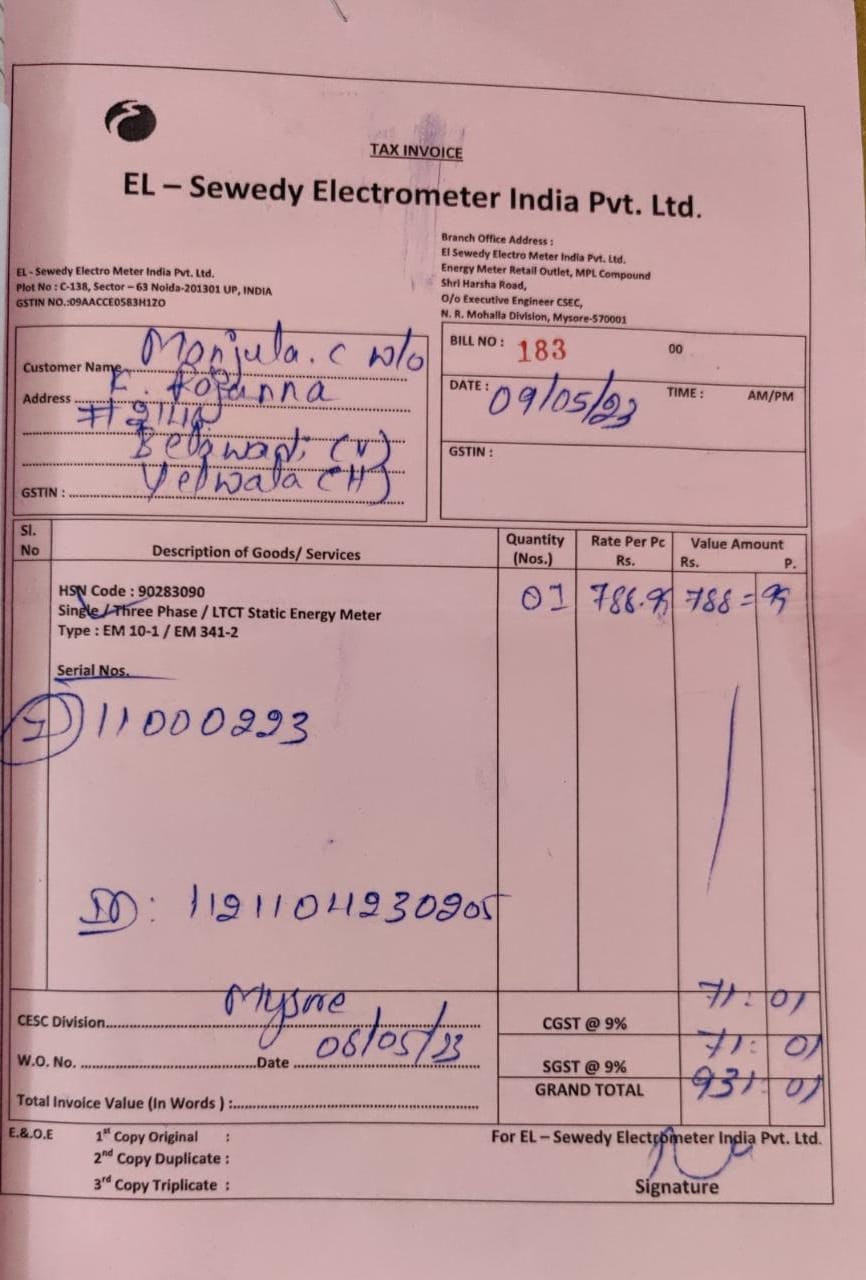 TAX INVOICE
EL – Sewedy Electrometer India Pvt. Ltd.
EL - Sewedy Electro Meter India Pvt. Ltd.
Plot No : C-138, Sector – 63 Noida-201301 UP, INDIA
GSTIN NO.:09AACCE0583H1ZO
Branch Office Address :
El Sewedy Electro Meter India Pvt. Ltd.
Energy Meter Retail Outlet, MPL Compound
Shri Harsha Road,
O/o Executive Engineer CSEC,
N. R. Mohalla Division, Mysore-570001
Customer Name Manjula . C w/o
Address
Yelwala (H)
GSTIN :
BILL NO : 183 00
DATE : 09/05/23 TIME : AM/PM
GSTIN :
Sl. No Description of Goods/ Services Quantity (Nos.) Rate Per Pc Rs. Value Amount Rs. P.
HSN Code : 90283090 01 788.95 788 = 95
Single / Three Phase / LTCT Static Energy Meter
Type : EM 10-1 / EM 341-2
Serial Nos.
11000223
ID : 11211042230205
CESC Division Mysore
W.O. No. Date 08/05/23
Total Invoice Value (In Words ) :
CGST @ 9% 71 : 01
SGST @ 9% 71 : 01
GRAND TOTAL 931 : 01
E.&.O.E 1st Copy Original :
2nd Copy Duplicate :
3rd Copy Triplicate :
For EL – Sewedy Electrometer India Pvt. Ltd.
Signature